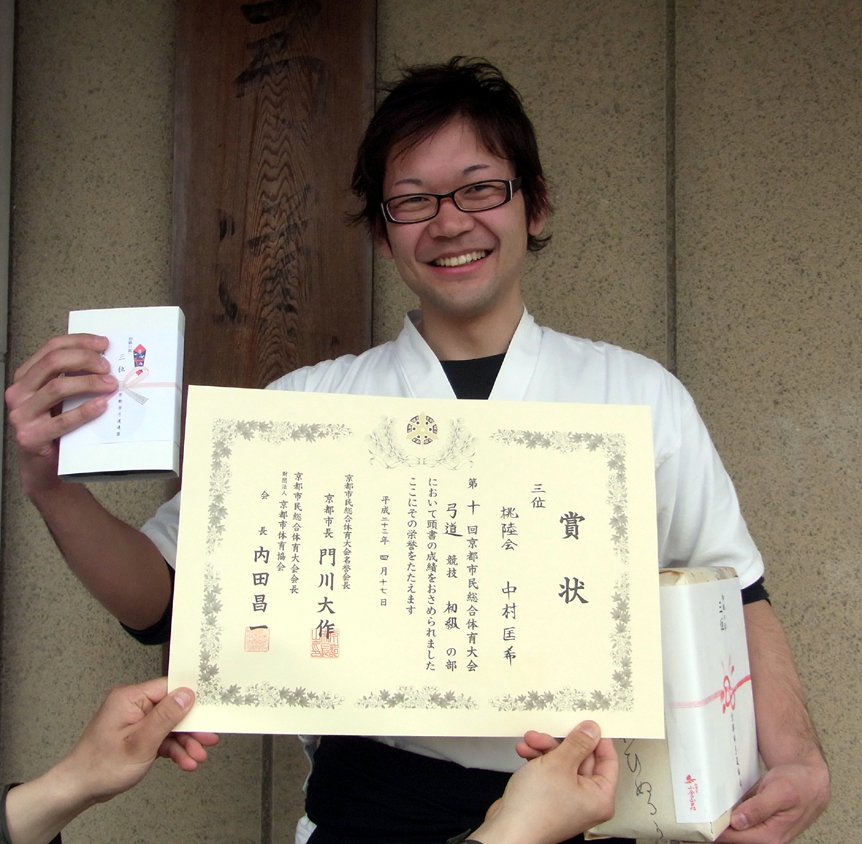 賞状
三位
桃陸会 中村匡希
第十回京都市民総合体育大会
弓道 競技 初級 の部
において頭書の成績をおさめられました
ここにその栄誉をたたえます
平成二十二年 四月十七日
京都市民総合体育大会名誉会長
京都市長 門川大作
京都市民総合体育大会会長
財団法人 京都市体育協会
会長 内田昌一
三位
三位